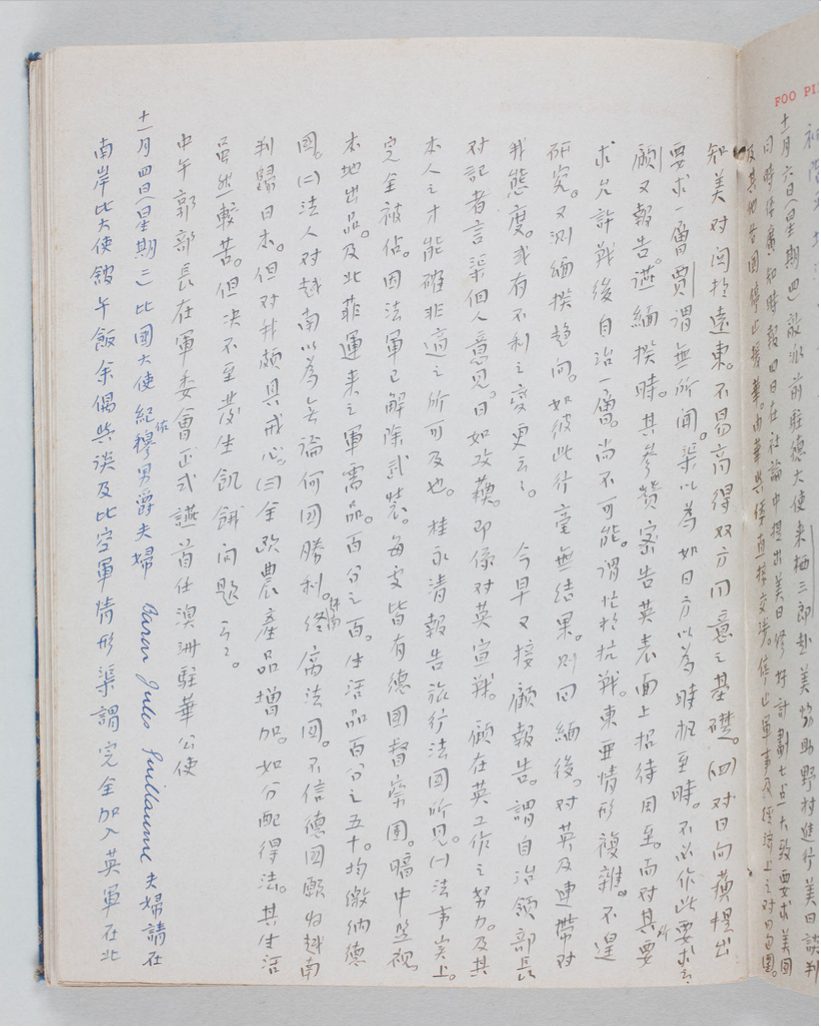 FOO PI
十一月六日(星期四)敵派前駐德大使来栖三郎赴美協助野村進行美日談判
同時倭廣知時報四日在社論中提出美日修好計劃七点大致要求美国
及其他各国停止援華。由華與倭直接交涉。停止軍事及經済上之対日包圍。
知美对国於遠東。不易商得双方同意之基礎。(四)对日向薦提出
要求一層賈謂無所聞。渠以為如日方以為時机至時。不必作此要求云
顧又報告。讌緬揆時。其參贊密告英表面上招待周至。而对其所要
求允許戰後自治一層。尚不可能。謂忙於抗戰。東亜情形複雜。不遑
研究。又測緬揆趋向。如彼此行毫無結果。則回緬後。对英及連帶对
我態度。或有不利之变更云云。 今早又接顧報告。謂自治領部長
对記者言渠個人意見。日如攻蘇。即係对英宣戰。顧在英工作之努力。及其
本人之才能確非適之所可及也。桂永清報告旅行法国所見。(一)法事实上。
完全被佔。因法軍已解除武装。每處皆有德國督察團。暗中监視。
本地出品。及北菲運来之軍需品。百分之百。生活品百分之五十。均繳納德
國。(二)法人对越南以為無論何國勝利。越南終离法国。不信德国願為越南
判歸日本。但对我頗具戒心。(三)全欧農產品增加。如分配得法。其生活
雖然較苦。但决不至發生飢餓问題云云。
中午郭部長在軍委會正式讌首任澳洲駐華公使
十一月四日(星期三)比國大使紀佑穆男爵夫婦 Baron Jules Guillaume 夫婦請在
南岸比大使舘午飯余偶與談及比空軍情形渠謂完全加入英軍在北